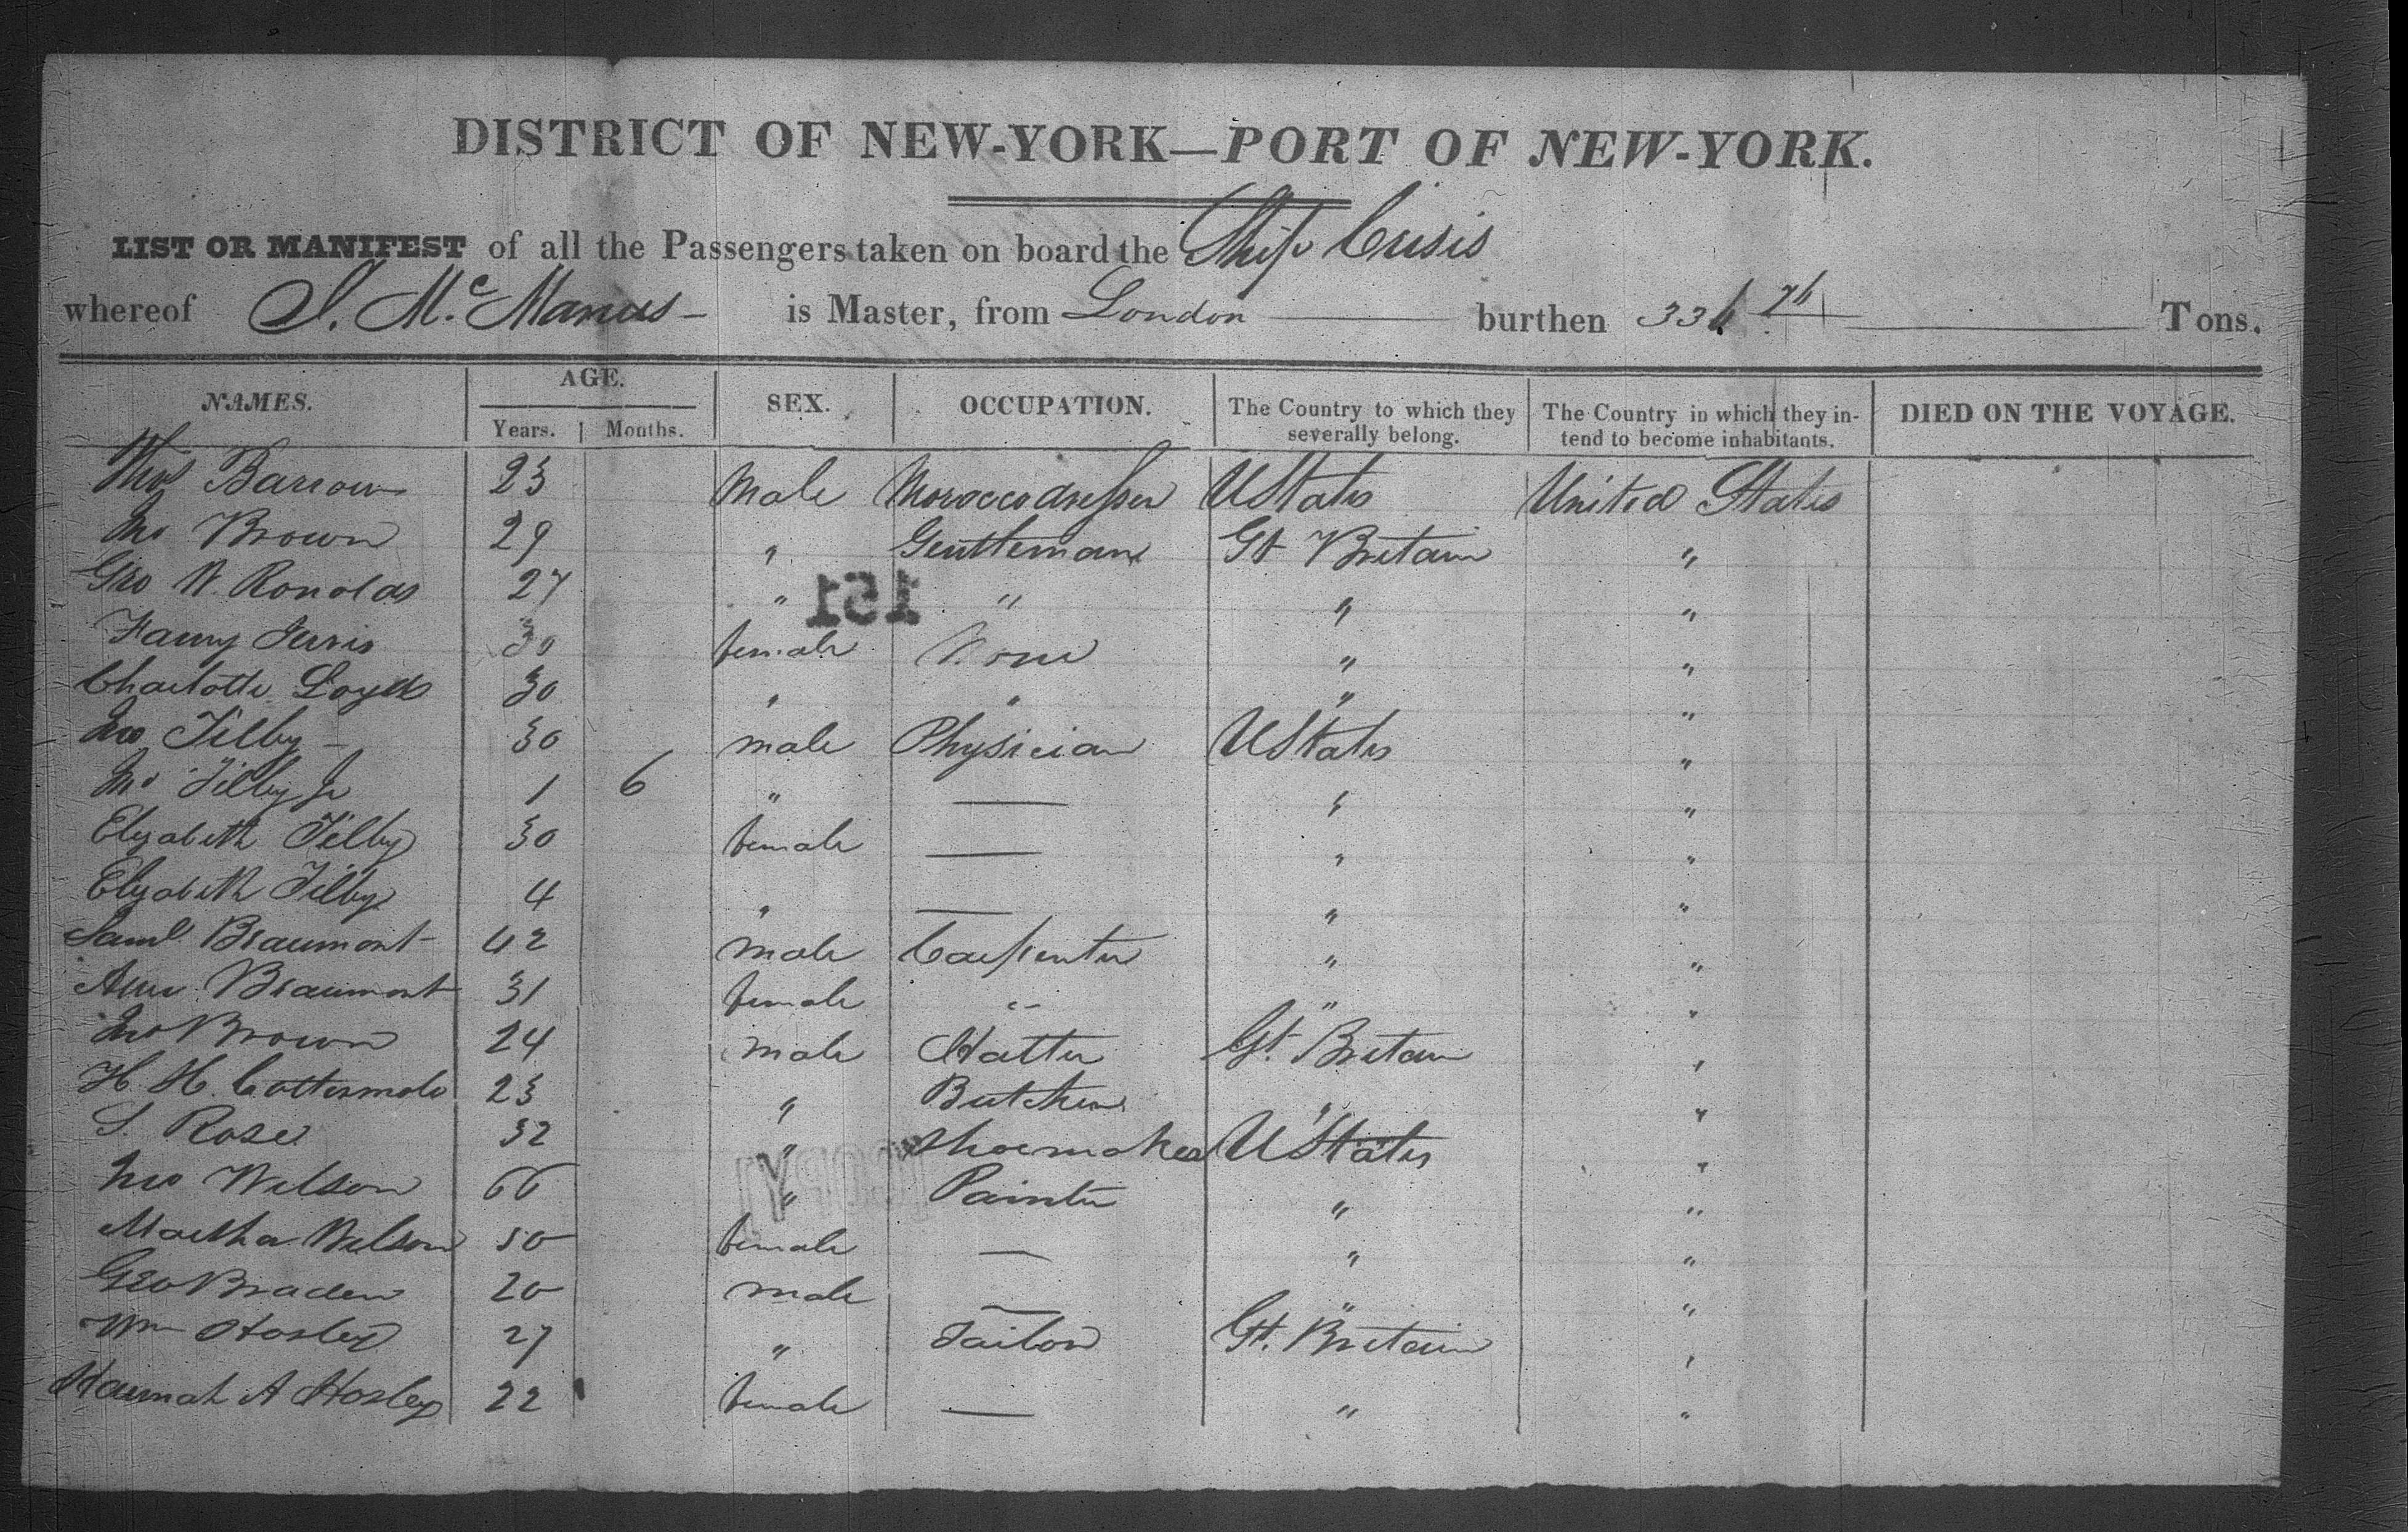 DISTRICT OF NEW-YORK—PORT OF NEW-YORK.
LIST OR MANIFEST of all the Passengers taken on board the Ship Crisis
whereof S. McManus is Master, from London burthen 336 Tons.
NAMES. AGE. Years. Months. SEX. OCCUPATION. The Country to which they severally belong. The Country in which they intend to become inhabitants. DIED ON THE VOYAGE.
Thos Barrow 23 Male Moroccodresser UStates United States
Jno Brown 29 " Gentleman Gt Britain "
Geo W. Ronolds 27 " " " "
151
Fanny Jervis 30 female None " "
Charlotte Loyd 30 " " " "
Jno Tilby 30 male Physician UStates "
Jno Tilby Jr 1 6 " — " "
Elizabeth Tilby 30 female — " "
Elizabeth Tilby 4 " — " "
Saml Beaumont 42 male Carpenter " "
Ann Beaumont 31 female " " "
Jno Brown 24 male Hatter Gt. Britain "
H. H. Cottermole 23 " Butcher " "
S. Rose 32 " Shoemaker UStates "
COPY
Jno Wilson 66 " Painter " "
Martha Wilson 50 female — " "
Geo Braden 20 male — " "
Wm Hosley 27 " Tailor Gt. Britain "
Hannah A Hosley 22 female — " "